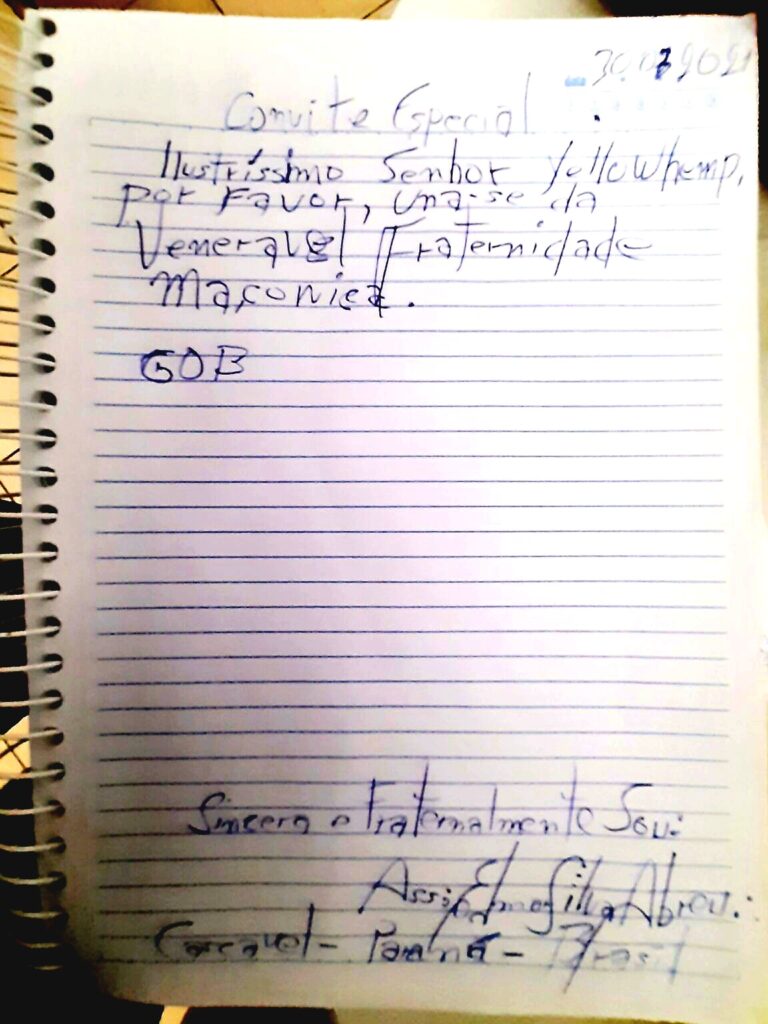 30.07.2021
Convite Especial
Ilustríssimo Senhor Yellowhemp,
por Favor, una-se da
Veneravel Fraternidade
Maçonica.
GOB
Sincera e Fraternalmente Sou:
Silva Abreu.:
Cascavel - Paraná - Brasil